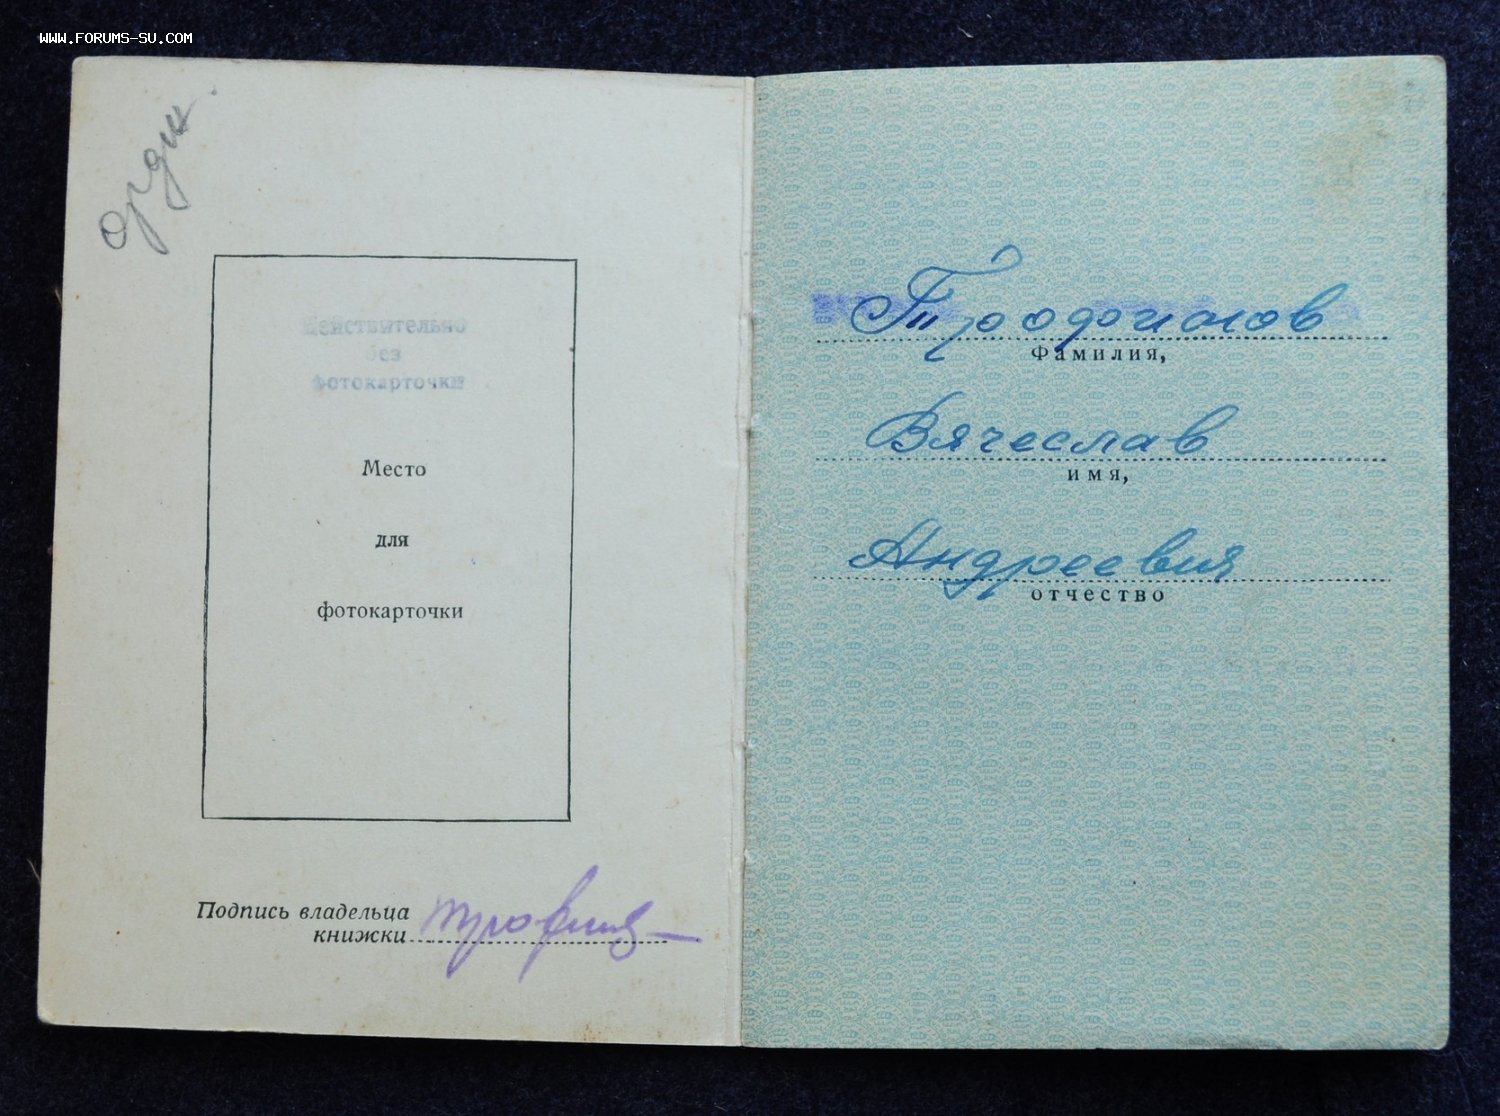 WWW.FORUMS-SU.COM
орди.
Действительно
без
фотокарточки
Место
для
фотокарточки
Подпись владельца
книжки
Фамилия,
Вячеслав
имя,
Андреевич
отчество